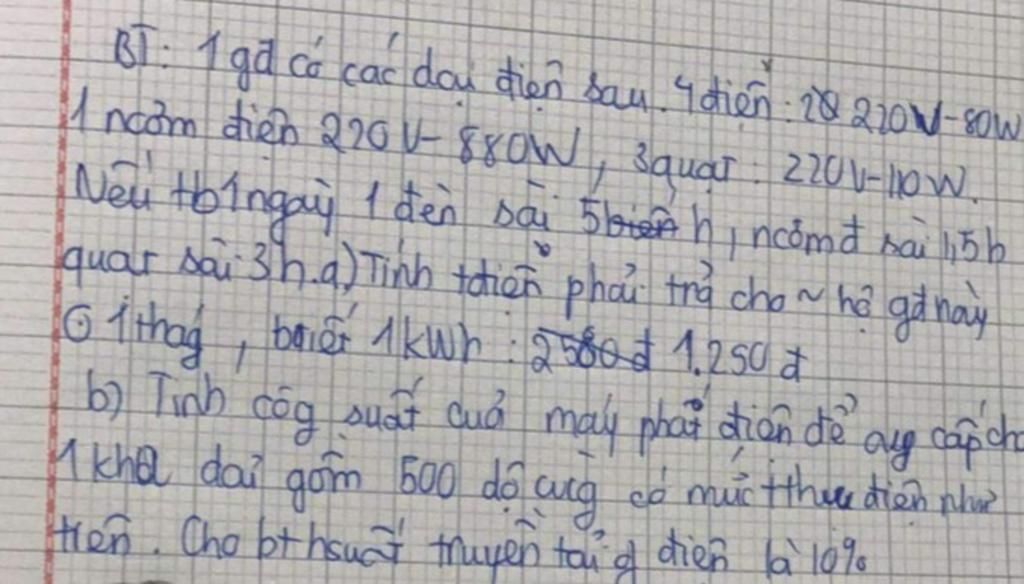 BT: 1 gđ có các dcụ điện sau. 4 điện: 220V-80W
1 ncơm điện 220V-880W, 3 quạt: 220V-110W.
Nếu tb 1 ngày 1 đèn sài 5 h, ncơm đ sài 1,5h
quạt sài 3h. a) Tính tđiện phải trả cho ~ hộ gđ này
1 thág, biết 1kWh: 1.250 đ
b) Tính côg suất của máy phát điện để cug cấp cho
1 khu dài gồm 500 độ cùg có mức tthu điện như
trên. Cho bt hsuất truyền tải đ điện là 10%